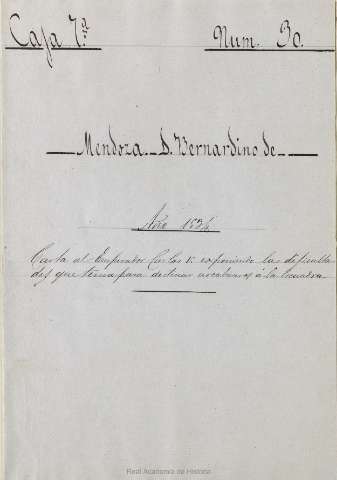 Caja 7ª
Num. 30.
Mendoza. D. Bernardino de
Año 1534
Carta al Emperador Carlos V. exponiendo las dificulta
des que tenia para destinar arcabuceros á la Escuadra
Real Academia de Historia